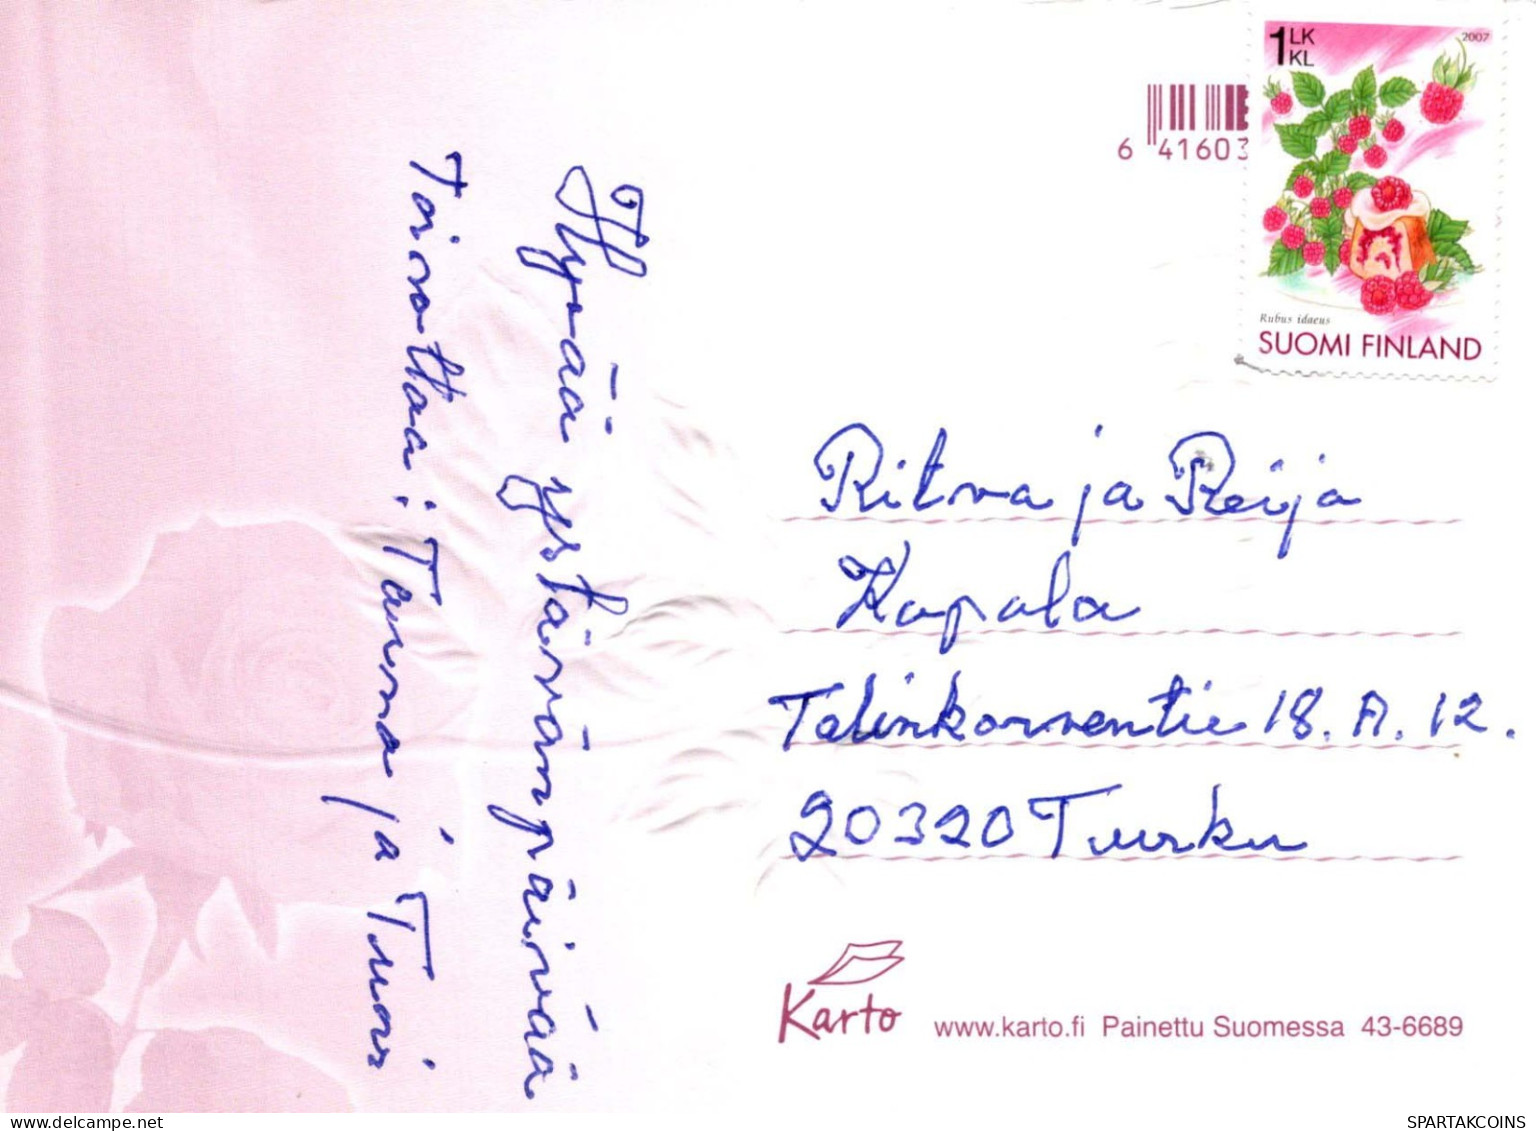 1 LK
KL
2007
Rubus idaeus
SUOMI FINLAND
6 41603
Hyvää ystävänpäivää
Toivottaa: Taina ja Tuori
Ritva ja Reija
Kapala
Talinkorventie 18. A. 12.
20320 Turku
Karto
www.karto.fi Painettu Suomessa 43-6689
delcampe.net
SPARTAKCOINS